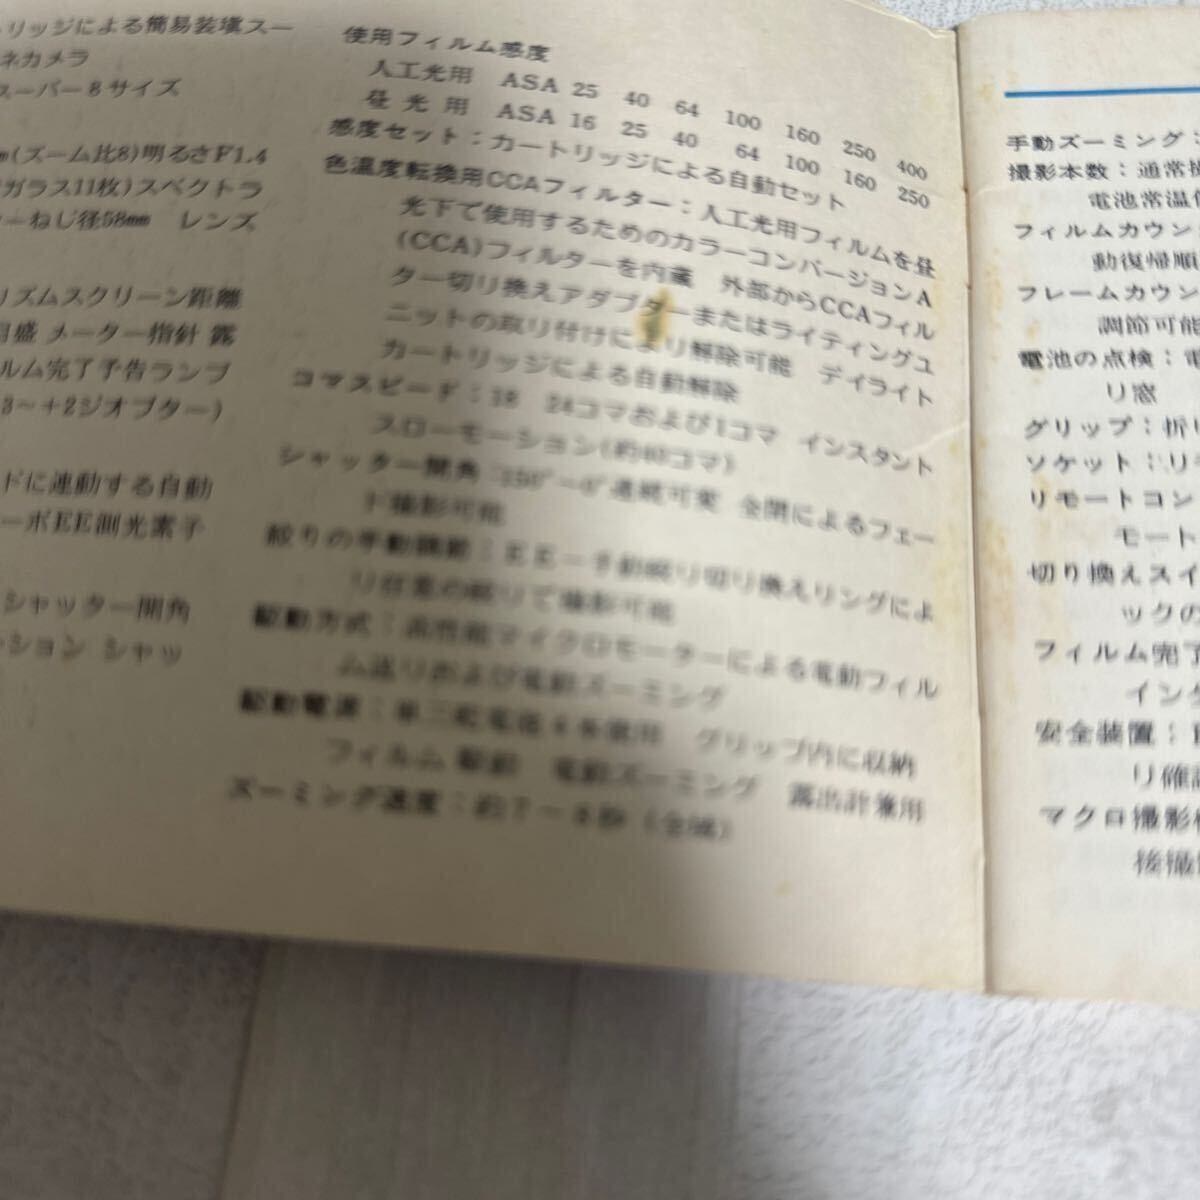 トリッジによる簡易装塡スー
ネカメラ
スーパー8サイズ
(ズーム比8)明るさF1.4
ガラス11枚)スペクトラ
ーねじ径58mm レンズ
リズムスクリーン距離
目盛 メーター指針 露
ルム完了予告ランプ
3～＋2ジオプター)
ドに連動する自動
ーボEE測光素子
シャッター開角
ション シャッ
使用フィルム感度
人工光用 ASA 25 40 64 100 160 250 400
昼光用 ASA 16 25 40 64 100 160 250
感度セット：カートリッジによる自動セット
色温度転換用CCAフィルター：人工光用フィルムを昼
光下で使用するためのカラーコンバージョンA
(CCA)フィルターを内蔵 外部からCCAフィル
ター切り換えアダプターまたはライティングユ
ニットの取り付けにより解除可能 デイライト
カートリッジによる自動解除
コマスピード：18 24コマおよび1コマ インスタント
スローモーション(約40コマ)
シャッター開角 150°－0°連続可変 全閉によるフェー
ド撮影可能
絞りの手動調節：EE－手動絞り切り換えリングによ
り任意の絞りで撮影可能
駆動方式：高性能マイクロモーターによる電動フィル
ム送りおよび電動ズーミング
駆動電源：単三乾電池 使用 グリップ内に収納
フィルム駆動 電動ズーミング 露出計兼用
ズーミング速度：約7－ 秒(全域)
手動ズーミング
撮影本数：通常
電池常温
フィルムカウン
動復帰順
フレームカウン
調節可能
電池の点検：
り窓
グリップ：折り
ソケット：リ
リモートコン
モート
切り換えスイ
ックの
フィルム完了
イン
安全装置：
り確
マクロ撮影
後撮